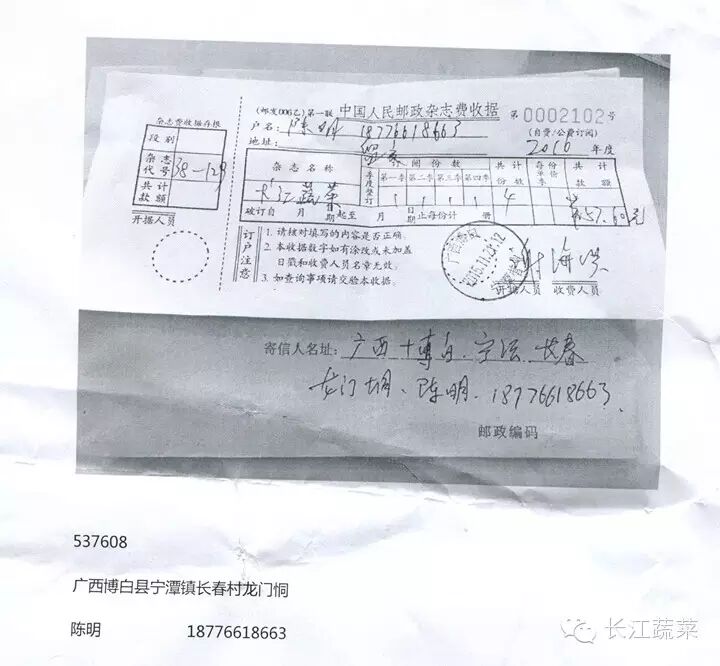 (邮发006乙)第一联 中国人民邮政杂志费收据 第0002102号
杂志费收据存根
户名: 陈明 18776618663 (自费/公费订阅)
地址: 2016 年度
段别
杂志代号 38-129
共计款额
开据人员
杂志名称 季度整订 份数 共计 每份单价 共计款额
第一季 第二季 第三季 第四季
长江蔬菜 1 1 1 1 4 57.60元
破订自 月 日期起至 月 日期止每份计 册
订户注意
1. 请核对填写的内容是否正确。
2. 本收据数字如有涂改或未加盖
日戳和收费人员名章无效。
3. 如查询事项请交验本收据。
开据人员 收费人员
寄信人名址: 广西 博白 宁潭 长春
龙门垌、陈明、18776618663
邮政编码
537608
广西博白县宁潭镇长春村龙门恫
陈明 18776618663
长江蔬菜